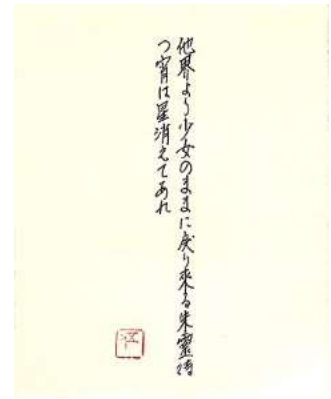 他界より少女のままに戻り来る朱靈待
つ宵は星消えてあれ